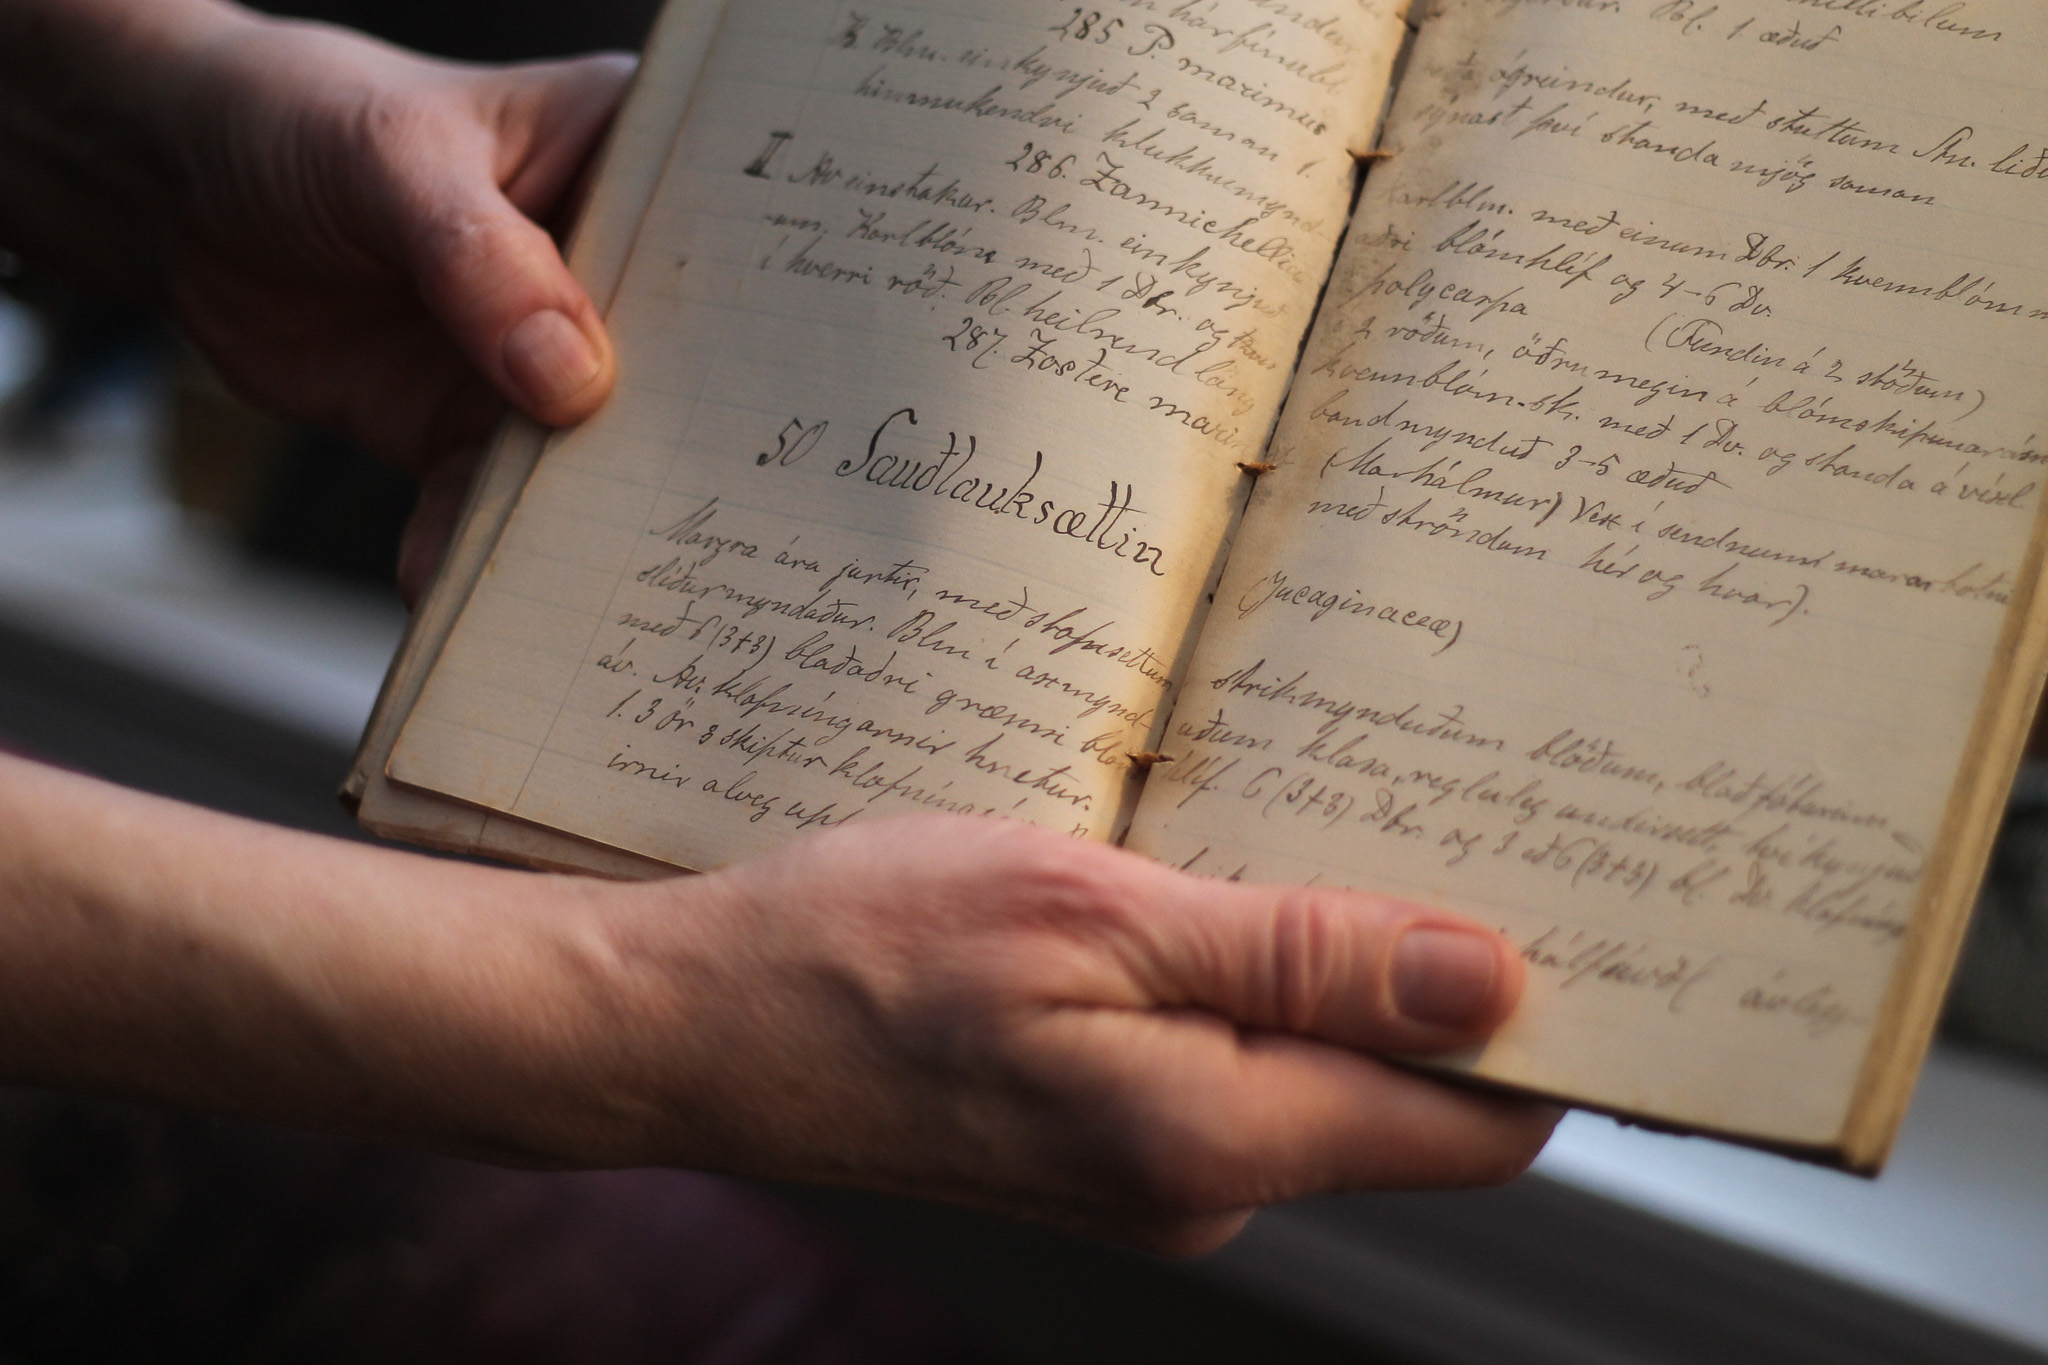 285 P. marimus
Blm. einkynjuð 2 saman 1.
himnukendri klukkumynd-
286. Zannichellia
II Av einstakar. Blm. einkynjuð
-um. Karlblóm með 1 Dbr. og
í hverri röð. Bl. heilrend löng
287. Zostere marina
50 Sauðlauksættin
Margra ára jurtir, með stofnsettum
slíðurmyndaður. Blm í axmynd-
með 6 (3+3) blaðaðri grænni blóm
áv. Av. klofníngarnir hnetur.
1. 3 ör 3 skiptur klofníng
irnir alveg upp
millibilum
Bl. 1 æðuð
ógreindur, með stuttum Stn. liðu
sýnast því standa mjög saman
karlblm. með einum Dbr. 1 kvennblóm
aðri blómhlíf og 4-6 Dv.
polycarpa (Fundin á 2 stöðum)
2 röðum, öðru megin á blómskipunar
kvennblóm-sk. með 1 Dv. og standa á víxl
band mynduð 3-5 æðuð
(Marhálmur) Vex í sendnum marar botni
með ströndum hér og hvar).
(Jucaginaceæ)
strikmynduðum blöðum, blaðfóturinn
uðum klasa, regluleg undirsett, tvíkynjuð
hlíf. 6 (3+3) Dbr. og 3 eð 6 (3+3) bl. Dv. klofníng